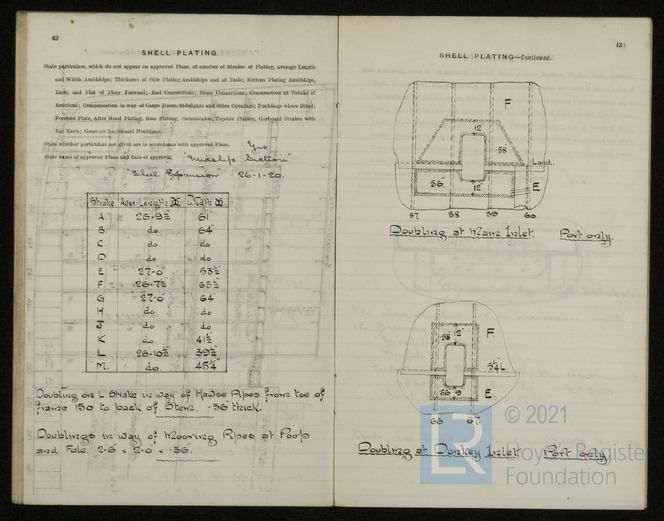 42
SHELL PLATING.
State particulars, which do not appear on approved Plans, of number of Strakes of Plating, average Length
and Width Amidships; Thickness of Side Plating Amidships and at Ends; Bottom Plating Amidships,
Ends, and Flat of Floor Forward; End Connections; Seam Connections; Construction at Breaks of
Erections; Compensation in way of Cargo Doors, Sidelights and other Openings; Doublings where fitted;
Forefoot Plate, After Hood Plating, Boss Plating, Sheerstrakes, Topside Plating, Garboard Strakes with
Bar Keels; Gunwale Angles and Mouldings.
State whether particulars not given are in accordance with approved Plans. Yes.
State name of approved Plans and date of approval. "Midship Section"
"Shell Expansion" 26-1-20.
Strake Aver. Length Width
A 26-9½ 61
B do 64
C do do
D do do
E 27-0 53½
F 26-7½ 65½
G 27-0 64
H do do
J do do
K do. 41½
L 26-10½ 39½
M. do. 45¼
Doubling on L Strake in way of Hawse Pipes from toe of
frame 150 to back of Stem. .36 thick.
Doublings in way of Mooring Pipes at Poop
and Fcle. 2-6 x 2-0 x .36.
43
SHELL PLATING—Continued.
F.
12"
.58
Load.
.56
12"
E.
57 58 59 60
Doubling at Main Inlet. Port only.
F.
12"
.58
54 L
.56 9
E
66 67
Doubling at Donkey Inlet Port only
LR
© 2021
Lloyd's Register
Foundation